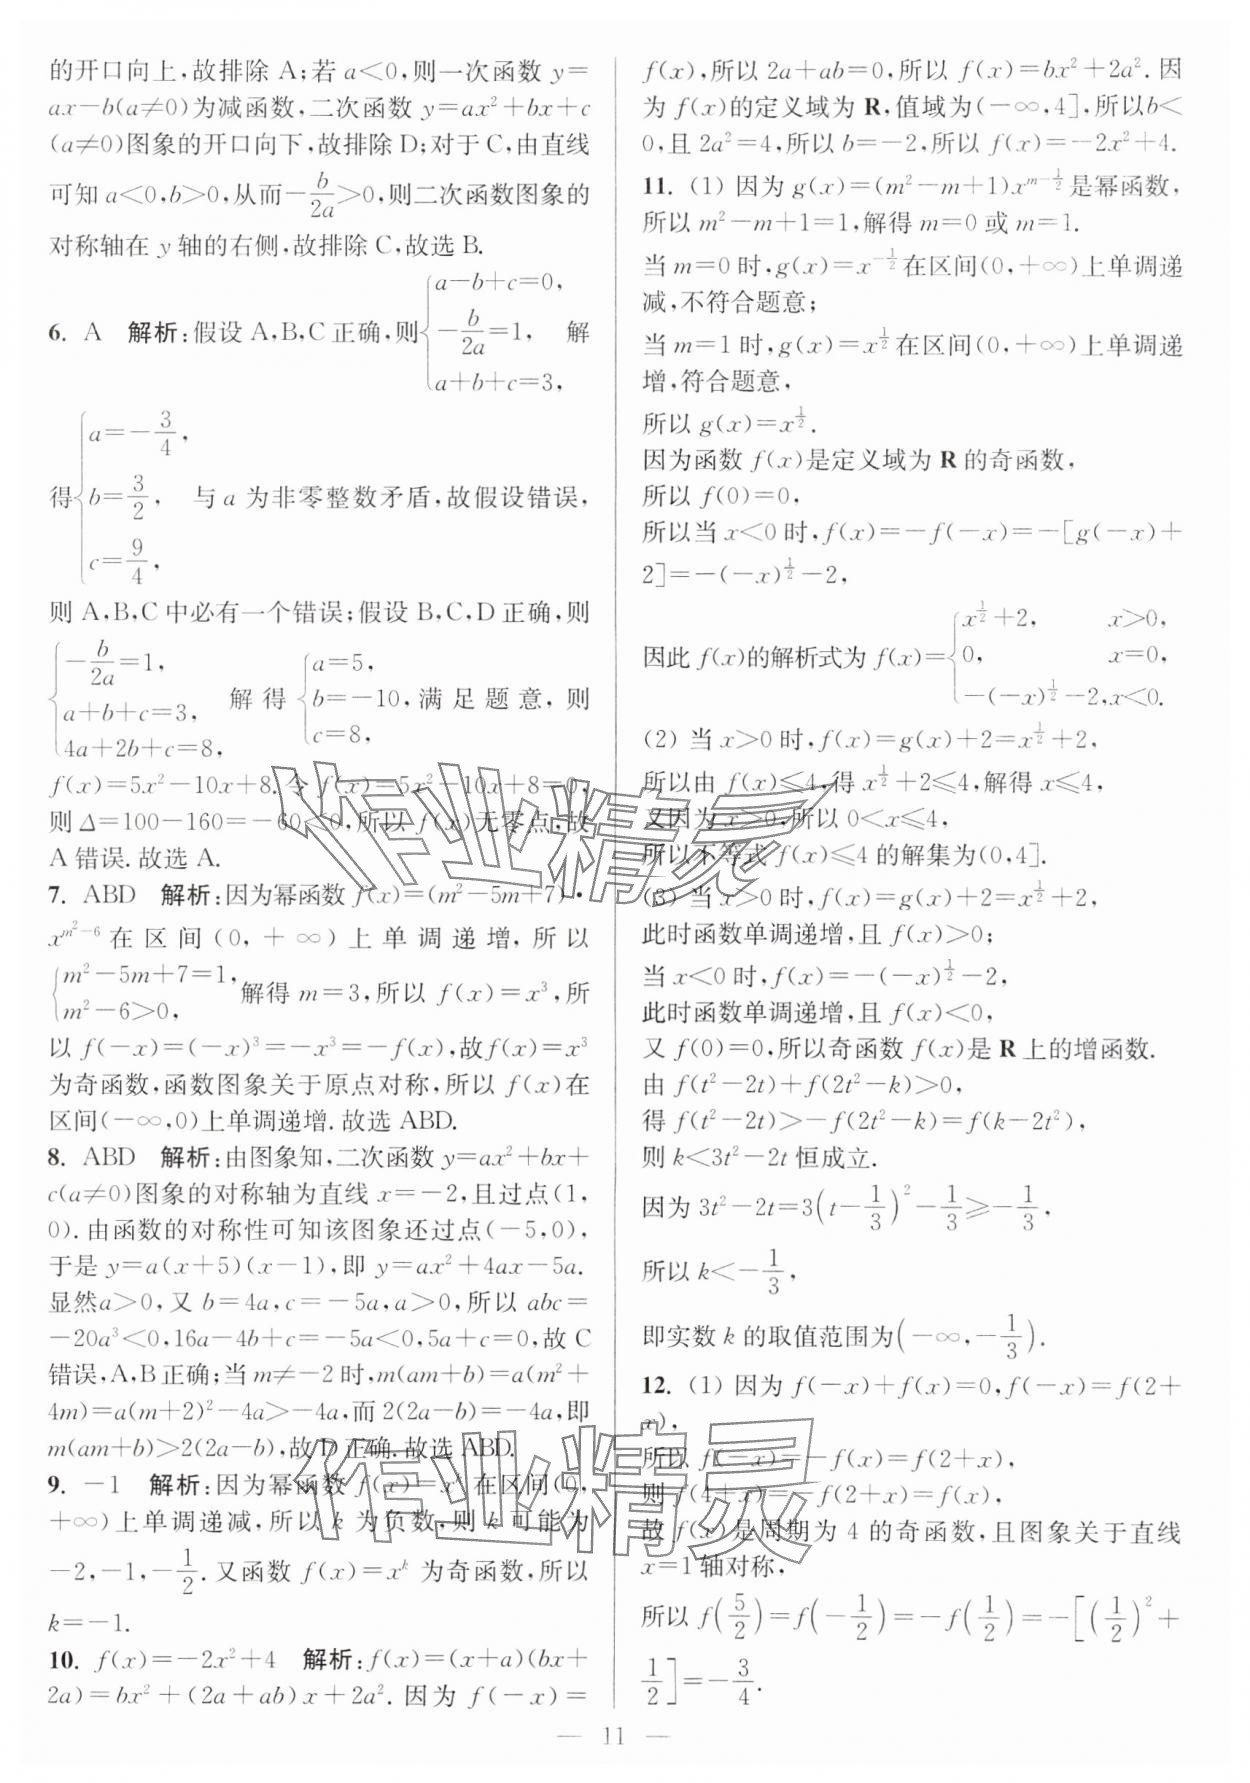 的开口向上,故排除 A;若 a<0,则一次函数 y=
ax-b(a≠0)为减函数,二次函数 y=ax²+bx+c
(a≠0)图象的开口向下,故排除 D;对于 C,由直线
可知 a<0,b>0,从而-\frac{b}{2a}>0,则二次函数图象的
对称轴在 y 轴的右侧,故排除 C,故选 B.
6. A 解析:假设 A,B,C 正确,则{a-b+c=0, -\frac{b}{2a}=1, a+b+c=3, 解
得{a=-\frac{3}{4}, b=\frac{3}{2}, c=\frac{9}{4}, 与 a 为非零整数矛盾,故假设错误,
则 A,B,C 中必有一个错误;假设 B,C,D 正确,则
{-\frac{b}{2a}=1, a+b+c=3, 4a+2b+c=8, 解得{a=5, b=-10, c=8, 满足题意,则
f(x)=5x²-10x+8.令 f(x)=5x²-10x+8=0,
则 Δ=100-160=-60<0,所以 f(x)无零点,故
A 错误.故选 A.
7. ABD 解析:因为幂函数 f(x)=(m²-5m+7)·
x^{m²-6}在区间(0,+∞)上单调递增,所以
{m²-5m+7=1, m²-6>0, 解得 m=3,所以 f(x)=x³,所
以 f(-x)=(-x)³=-x³=-f(x),故f(x)=x³
为奇函数,函数图象关于原点对称,所以 f(x)在
区间(-∞,0)上单调递增.故选 ABD.
8. ABD 解析:由图象知,二次函数 y=ax²+bx+
c(a≠0)图象的对称轴为直线 x=-2,且过点(1,
0).由函数的对称性可知该图象还过点(-5,0),
于是 y=a(x+5)(x-1),即 y=ax²+4ax-5a.
显然a>0,又 b=4a,c=-5a,a>0,所以 abc=
-20a³<0,16a-4b+c=-5a<0,5a+c=0,故 C
错误,A,B 正确;当 m≠-2 时,m(am+b)=a(m²+
4m)=a(m+2)²-4a>-4a,而 2(2a-b)=-4a,即
m(am+b)>2(2a-b),故 D 正确.故选 ABD.
9. -1 解析:因为幂函数 f(x)=x^k 在区间(0,
+∞)上单调递减,所以 k 为负数,则 k 可能为
-2,-1,-\frac{1}{2}.又函数 f(x)=x^k 为奇函数,所以
k=-1.
10. f(x)=-2x²+4 解析:f(x)=(x+a)(bx+
2a)=bx²+(2a+ab)x+2a².因为 f(-x)=
f(x),所以 2a+ab=0,所以 f(x)=bx²+2a².因
为 f(x)的定义域为 R,值域为(-∞,4],所以b<
0,且 2a²=4,所以 b=-2,所以 f(x)=-2x²+4.
11. (1) 因为 g(x)=(m²-m+1)x^{m-\frac{1}{2}}是幂函数,
所以 m²-m+1=1,解得 m=0 或 m=1.
当 m=0 时,g(x)=x^{-\frac{1}{2}}在区间(0,+∞)上单调递
减,不符合题意;
当 m=1 时,g(x)=x^{\frac{1}{2}}在区间(0,+∞)上单调递
增,符合题意,
所以 g(x)=x^{\frac{1}{2}}.
因为函数 f(x)是定义域为 R 的奇函数,
所以 f(0)=0,
所以当 x<0 时,f(x)=-f(-x)=-[g(-x)+
2]=-(-x)^{\frac{1}{2}}-2,
因此 f(x)的解析式为 f(x)={x^{\frac{1}{2}}+2, x>0, 0, x=0, -(-x)^{\frac{1}{2}}-2,x<0.
(2) 当 x>0 时,f(x)=g(x)+2=x^{\frac{1}{2}}+2,
所以由 f(x)≤4,得 x^{\frac{1}{2}}+2≤4,解得 x≤4,
又因为 x>0,所以 0<x≤4,
所以不等式 f(x)≤4 的解集为(0,4].
(3) 当 x>0 时,f(x)=g(x)+2=x^{\frac{1}{2}}+2,
此时函数单调递增,且 f(x)>0;
当 x<0 时,f(x)=-(-x)^{\frac{1}{2}}-2,
此时函数单调递增,且 f(x)<0,
又 f(0)=0,所以奇函数 f(x)是 R 上的增函数.
由 f(t²-2t)+f(2t²-k)>0,
得 f(t²-2t)>-f(2t²-k)=f(k-2t²),
则 k<3t²-2t 恒成立.
因为 3t²-2t=3(t-\frac{1}{3})²-\frac{1}{3}≥-\frac{1}{3},
所以 k<-\frac{1}{3},
即实数 k 的取值范围为(-∞,-\frac{1}{3}).
12. (1) 因为 f(-x)+f(x)=0,f(-x)=f(2+
x),
所以 f(-x)=-f(x)=f(2+x),
则 f(4+x)=-f(2+x)=f(x),
故 f(x)是周期为 4 的奇函数,且图象关于直线
x=1 轴对称,
所以 f(\frac{5}{2})=f(-\frac{1}{2})=-f(\frac{1}{2})=-[(\frac{1}{2})²+
\frac{1}{2}]=-\frac{3}{4}.
— 11 —
作业精灵
作业精灵